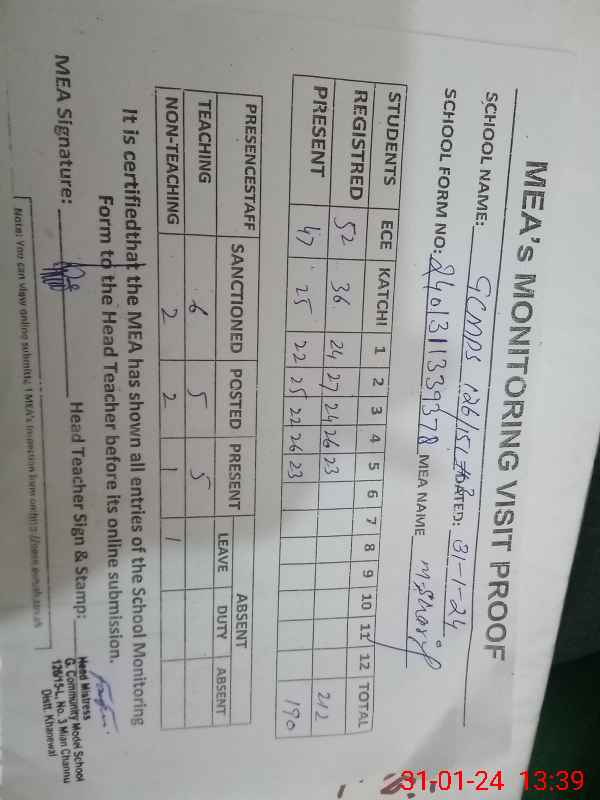 MEA's MONITORING VISIT PROOF
SCHOOL NAME: GCMPS 126/15L #3 DATED: 31-1-24
SCHOOL FORM NO: 24013111339378 MEA NAME M Sharif
STUDENTS ECE KATCHI 1 2 3 4 5 6 7 8 9 10 11 12 TOTAL
REGISTRED 52 36 24 27 24 26 23 212
PRESENT 47 25 22 25 22 26 23 190
PRESENCESTAFF SANCTIONED POSTED PRESENT ABSENT
LEAVE DUTY ABSENT
TEACHING 6 5 5
NON-TEACHING 2 2 1 1
It is certifiedthat the MEA has shown all entries of the School Monitoring
Form to the Head Teacher before its online submission.
MEA Signature: Head Teacher Sign & Stamp:
Head Mistress
G. Community Model School
126/15-L, No. 3 Mian Channu
Distt. Khanewal
Note: You can view online submitted MEA's inspection form on
31-01-24 13:39